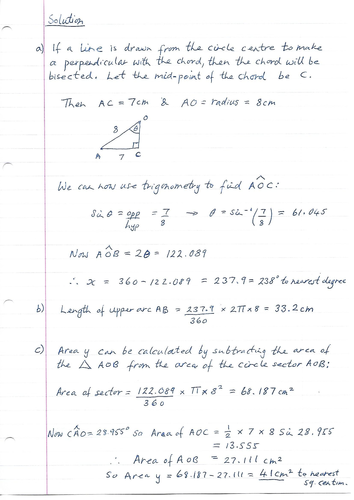 Solution
a) If a line is drawn from the circle centre to make
a perpendicular with the chord, then the chord will be
bisected. Let the mid-point of the chord be C.
Then AC = 7cm & AO = radius = 8cm
O
8 θ
A 7 C
We can now use trigonometry to find AÔC:
Sin θ = opp/hyp = 7/8 ⇒ θ = Sin⁻¹(7/8) = 61.045
Now AÔB = 2θ = 122.089
∴ x = 360 - 122.089 = 237.9 = 238° to nearest degree
b) Length of upper arc AB = 237.9/360 × 2π × 8 = 33.2cm
c) Area y can be calculated by subtracting the area of
the △ AOB from the area of the circle sector AOB:
Area of sector = 122.089/360 × π × 8² = 68.187 cm²
Now CÂO = 28.955° so Area of AOC = 1/2 × 7 × 8 Sin 28.955
= 13.555
∴ Area of AOB = 27.111 cm²
So Area y = 68.187 - 27.111 = 41cm² to nearest
sq. centim.